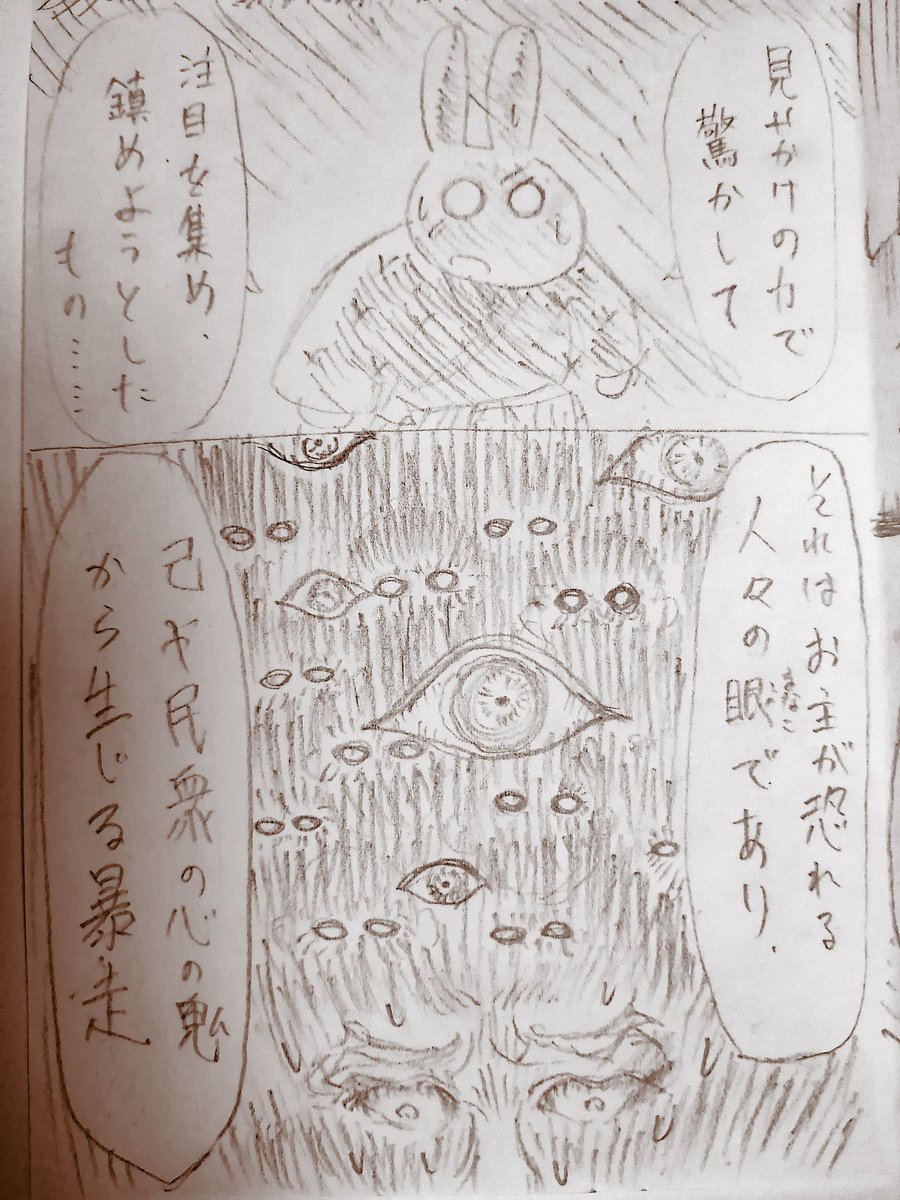 見せかけの力で
驚かして
注目を集め、
鎮めようとした
もの……
それはお主が恐れる
人々の眼であり、
まなこ
己や民衆の心の鬼
から生じる暴走